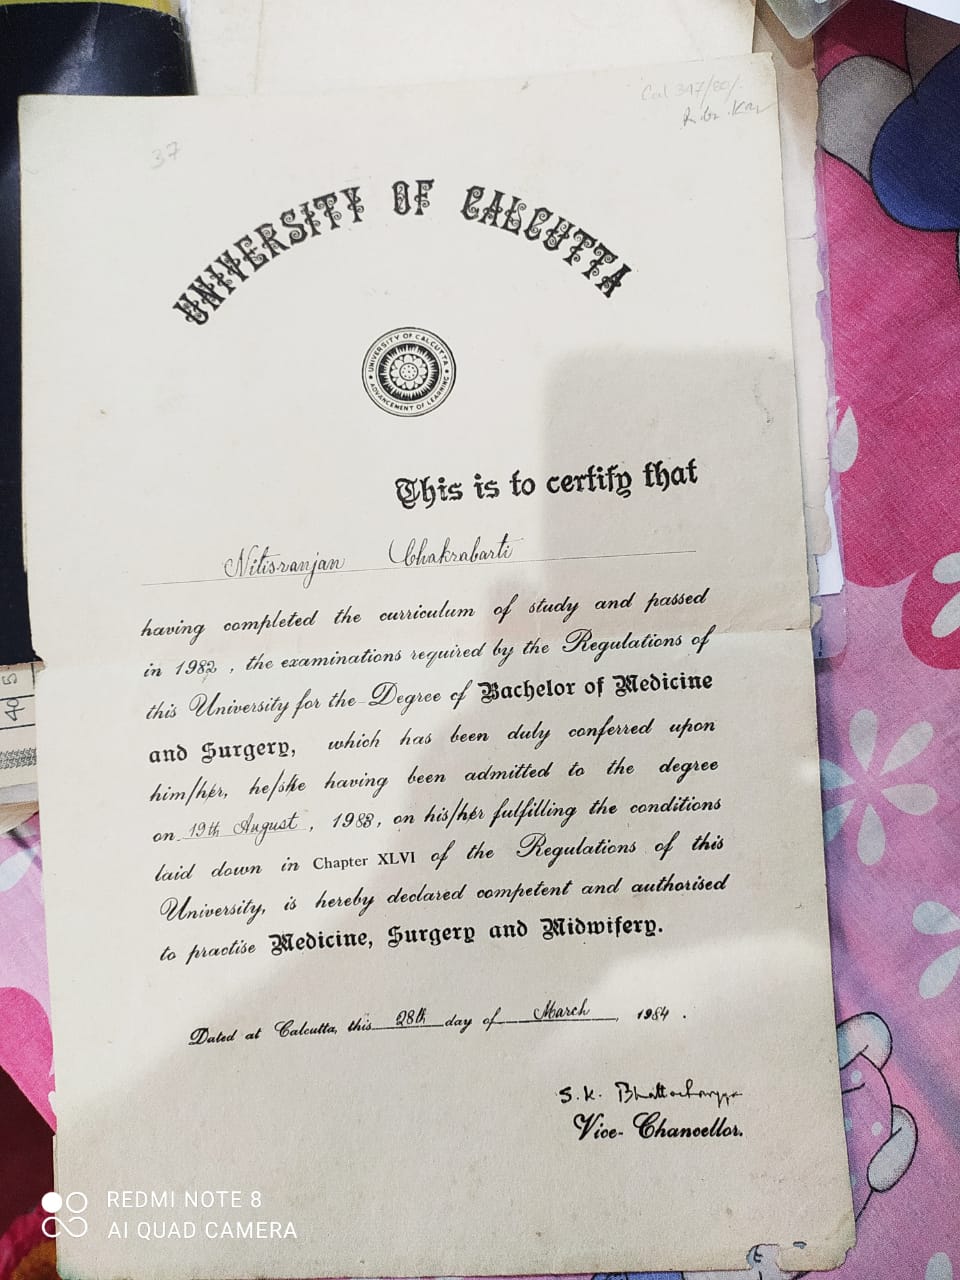 Cal 347/80/-
37
UNIVERSITY OF CALCUTTA
UNIVERSITY OF CALCUTTA
ADVANCEMENT OF LEARNING
This is to certify that
Nitisranjan Chakrabarti
having completed the curriculum of study and passed
in 1982, the examinations required by the Regulations of
this University for the Degree of Bachelor of Medicine
and Surgery, which has been duly conferred upon
him/her, he/she having been admitted to the degree
on 19th August, 1983, on his/her fulfilling the conditions
laid down in Chapter XLVI of the Regulations of this
University, is hereby declared competent and authorised
to practise Medicine, Surgery and Midwifery.
Dated at Calcutta, this 28th day of March 1984.
S. K. Bhattacharyya
Vice-Chancellor.
40 5
REDMI NOTE 8
AI QUAD CAMERA